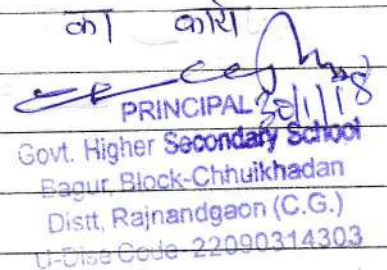 का कार्य
30/1/18
PRINCIPAL
Govt. Higher Secondary School
Bagur, Block-Chhuikhadan
Distt, Rajnandgaon (C.G.)
U-Dise Code-22090314303